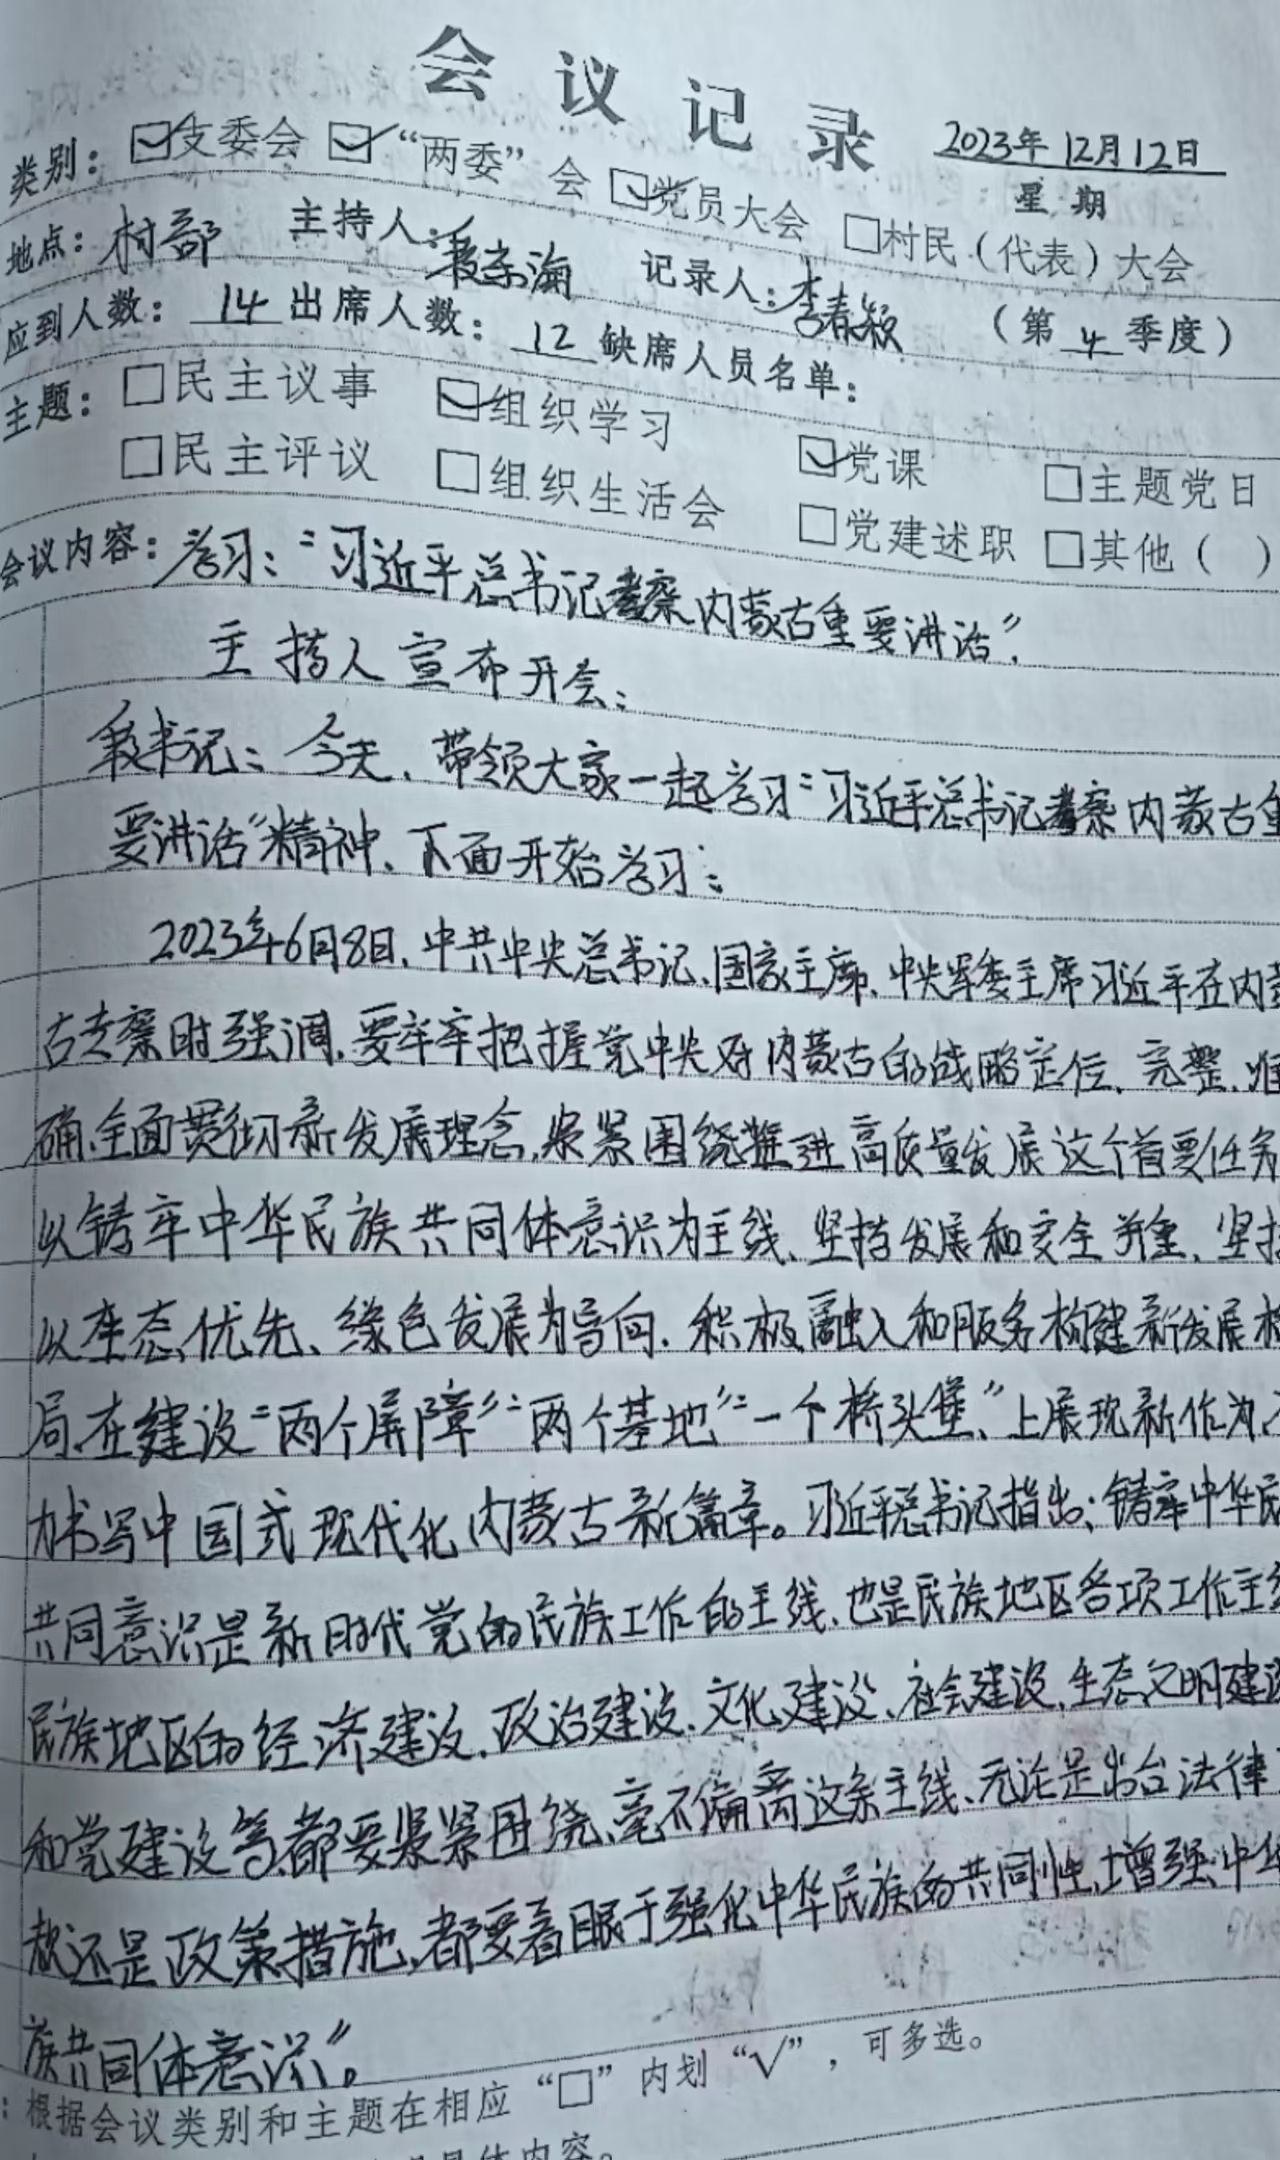 会议记录
2023年12月12日
类别：☑支委会 ☑“两委”会 ☑党员大会 □村民（代表）大会
星期
地点：村部 主持人： 记录人：李春颖 （第4季度）
应到人数：14 出席人数：12 缺席人员名单：
主题：□民主议事 ☑组织学习 ☑党课 □主题党日
□民主评议 □组织生活会 □党建述职 □其他（ ）
会议内容：学习：“习近平总书记考察内蒙古重要讲话”.
主持人宣布开会：
书记：今天、带领大家一起学习“习近平总书记考察内蒙古重
要讲话”精神、下面开始学习：
2023年6月8日、中共中央总书记、国家主席、中央军委主席习近平在内蒙
古考察时强调、要牢牢把握党中央对内蒙古的战略定位、完整、准
确、全面贯彻新发展理念、紧紧围绕推进高质量发展这个首要任务
以铸牢中华民族共同体意识为主线、坚持发展和安全并重、坚持
以生态优先、绿色发展为导向、积极融入和服务构建新发展格
局、在建设“两个屏障”“两个基地”“一个桥头堡”上展现新作为、
力书写中国式现代化内蒙古新篇章。习近平总书记指出：铸牢中华民
共同意识是新时代党的民族工作的主线、也是民族地区各项工作主线
民族地区的经济建设、政治建设、文化建设、社会建设、生态文明建设
和党建设等、都要紧紧围绕、毫不偏离这条主线、无论是出台法律
还是政策措施、都要着眼于强化中华民族的共同性、增强中华
族共同体意识”。
：根据会议类别和主题在相应“□”内划“√”，可多选。
具体内容。